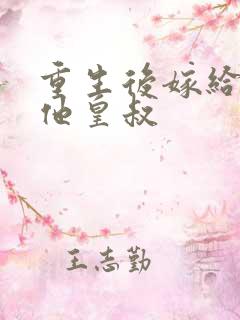 重生後嫁給
他皇叔
王志勤